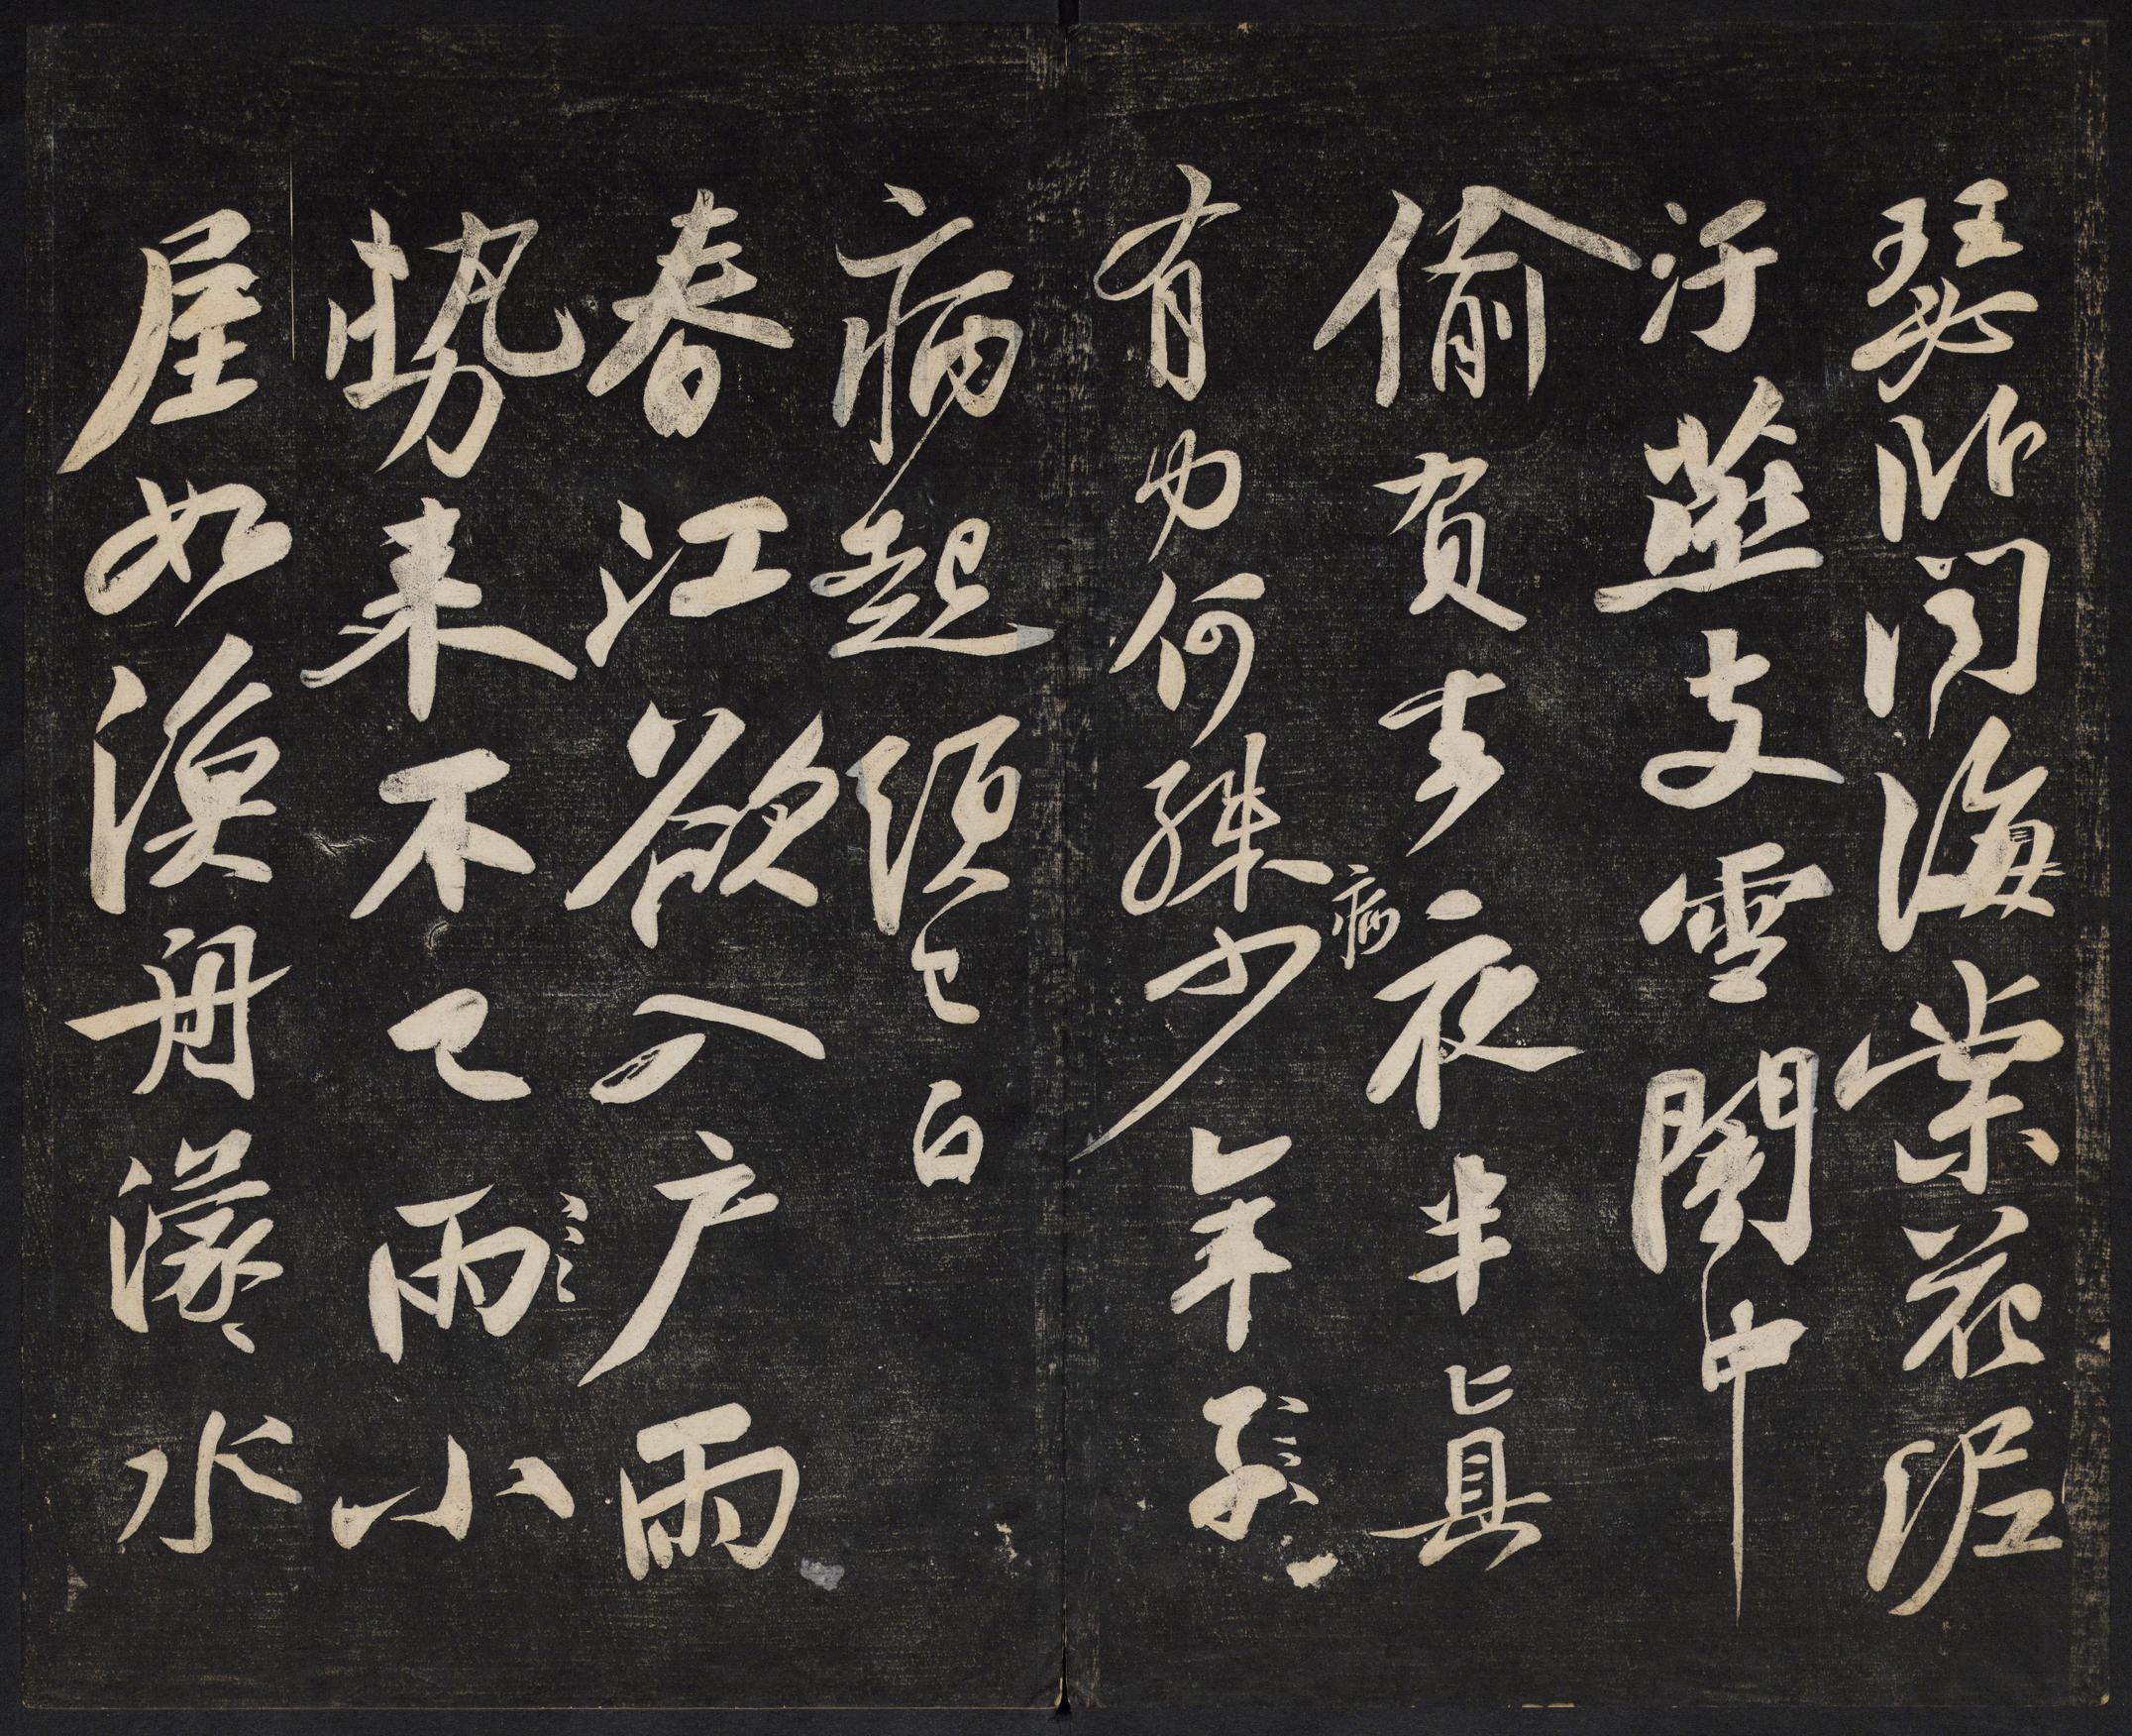 瑟臥聞海棠花泥
汙燕支雪闇中
偷負去夜半真
有力何殊少年子
病
病起須已白
春江欲入戶雨
勢來不已雨小
屋如漁舟濛〻水